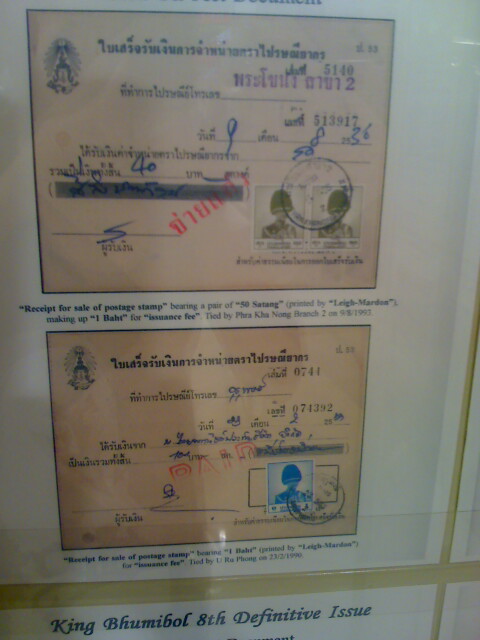 ใบเสร็จรับเงินการจำหน่ายตราไปรษณียากร
ป. 53
เล่มที่ 5140
พระโขนง สาขา 2
ที่ทำการไปรษณีย์โทรเลข
เลขที่ 513917
วันที่ 9 เดือน 8 36
ได้รับเงินค่าจำหน่ายตราไปรษณียากรจาก
รวมเป็นเงินทั้งสิ้น 40 บาท สตางค์
ผู้รับเงิน
สำหรับค่าธรรมเนียมในการออกใบเสร็จรับเงิน
"Receipt for sale of postage stamp" bearing a pair of "50 Satang" (printed by "Leigh-Mardon"),
making up "1 Baht" for "issuance fee". Tied by Phra Kha Nong Branch 2 on 9/8/1993.
ใบเสร็จรับเงินการจำหน่ายตราไปรษณียากร
ป. 53
เล่มที่ 0744
ที่ทำการไปรษณีย์โทรเลข
เลขที่ 074392
วันที่ 23 เดือน 2
ได้รับเงินจาก
เป็นเงินรวมทั้งสิ้น บาท
PAID
ผู้รับเงิน
"Receipt for sale of postage stamp" bearing "1 Baht" (printed by "Leigh-Mardon")
for "issuance fee". Tied by U Ru Phong on 23/2/1990.
King Bhumibol 8th Definitive Issue